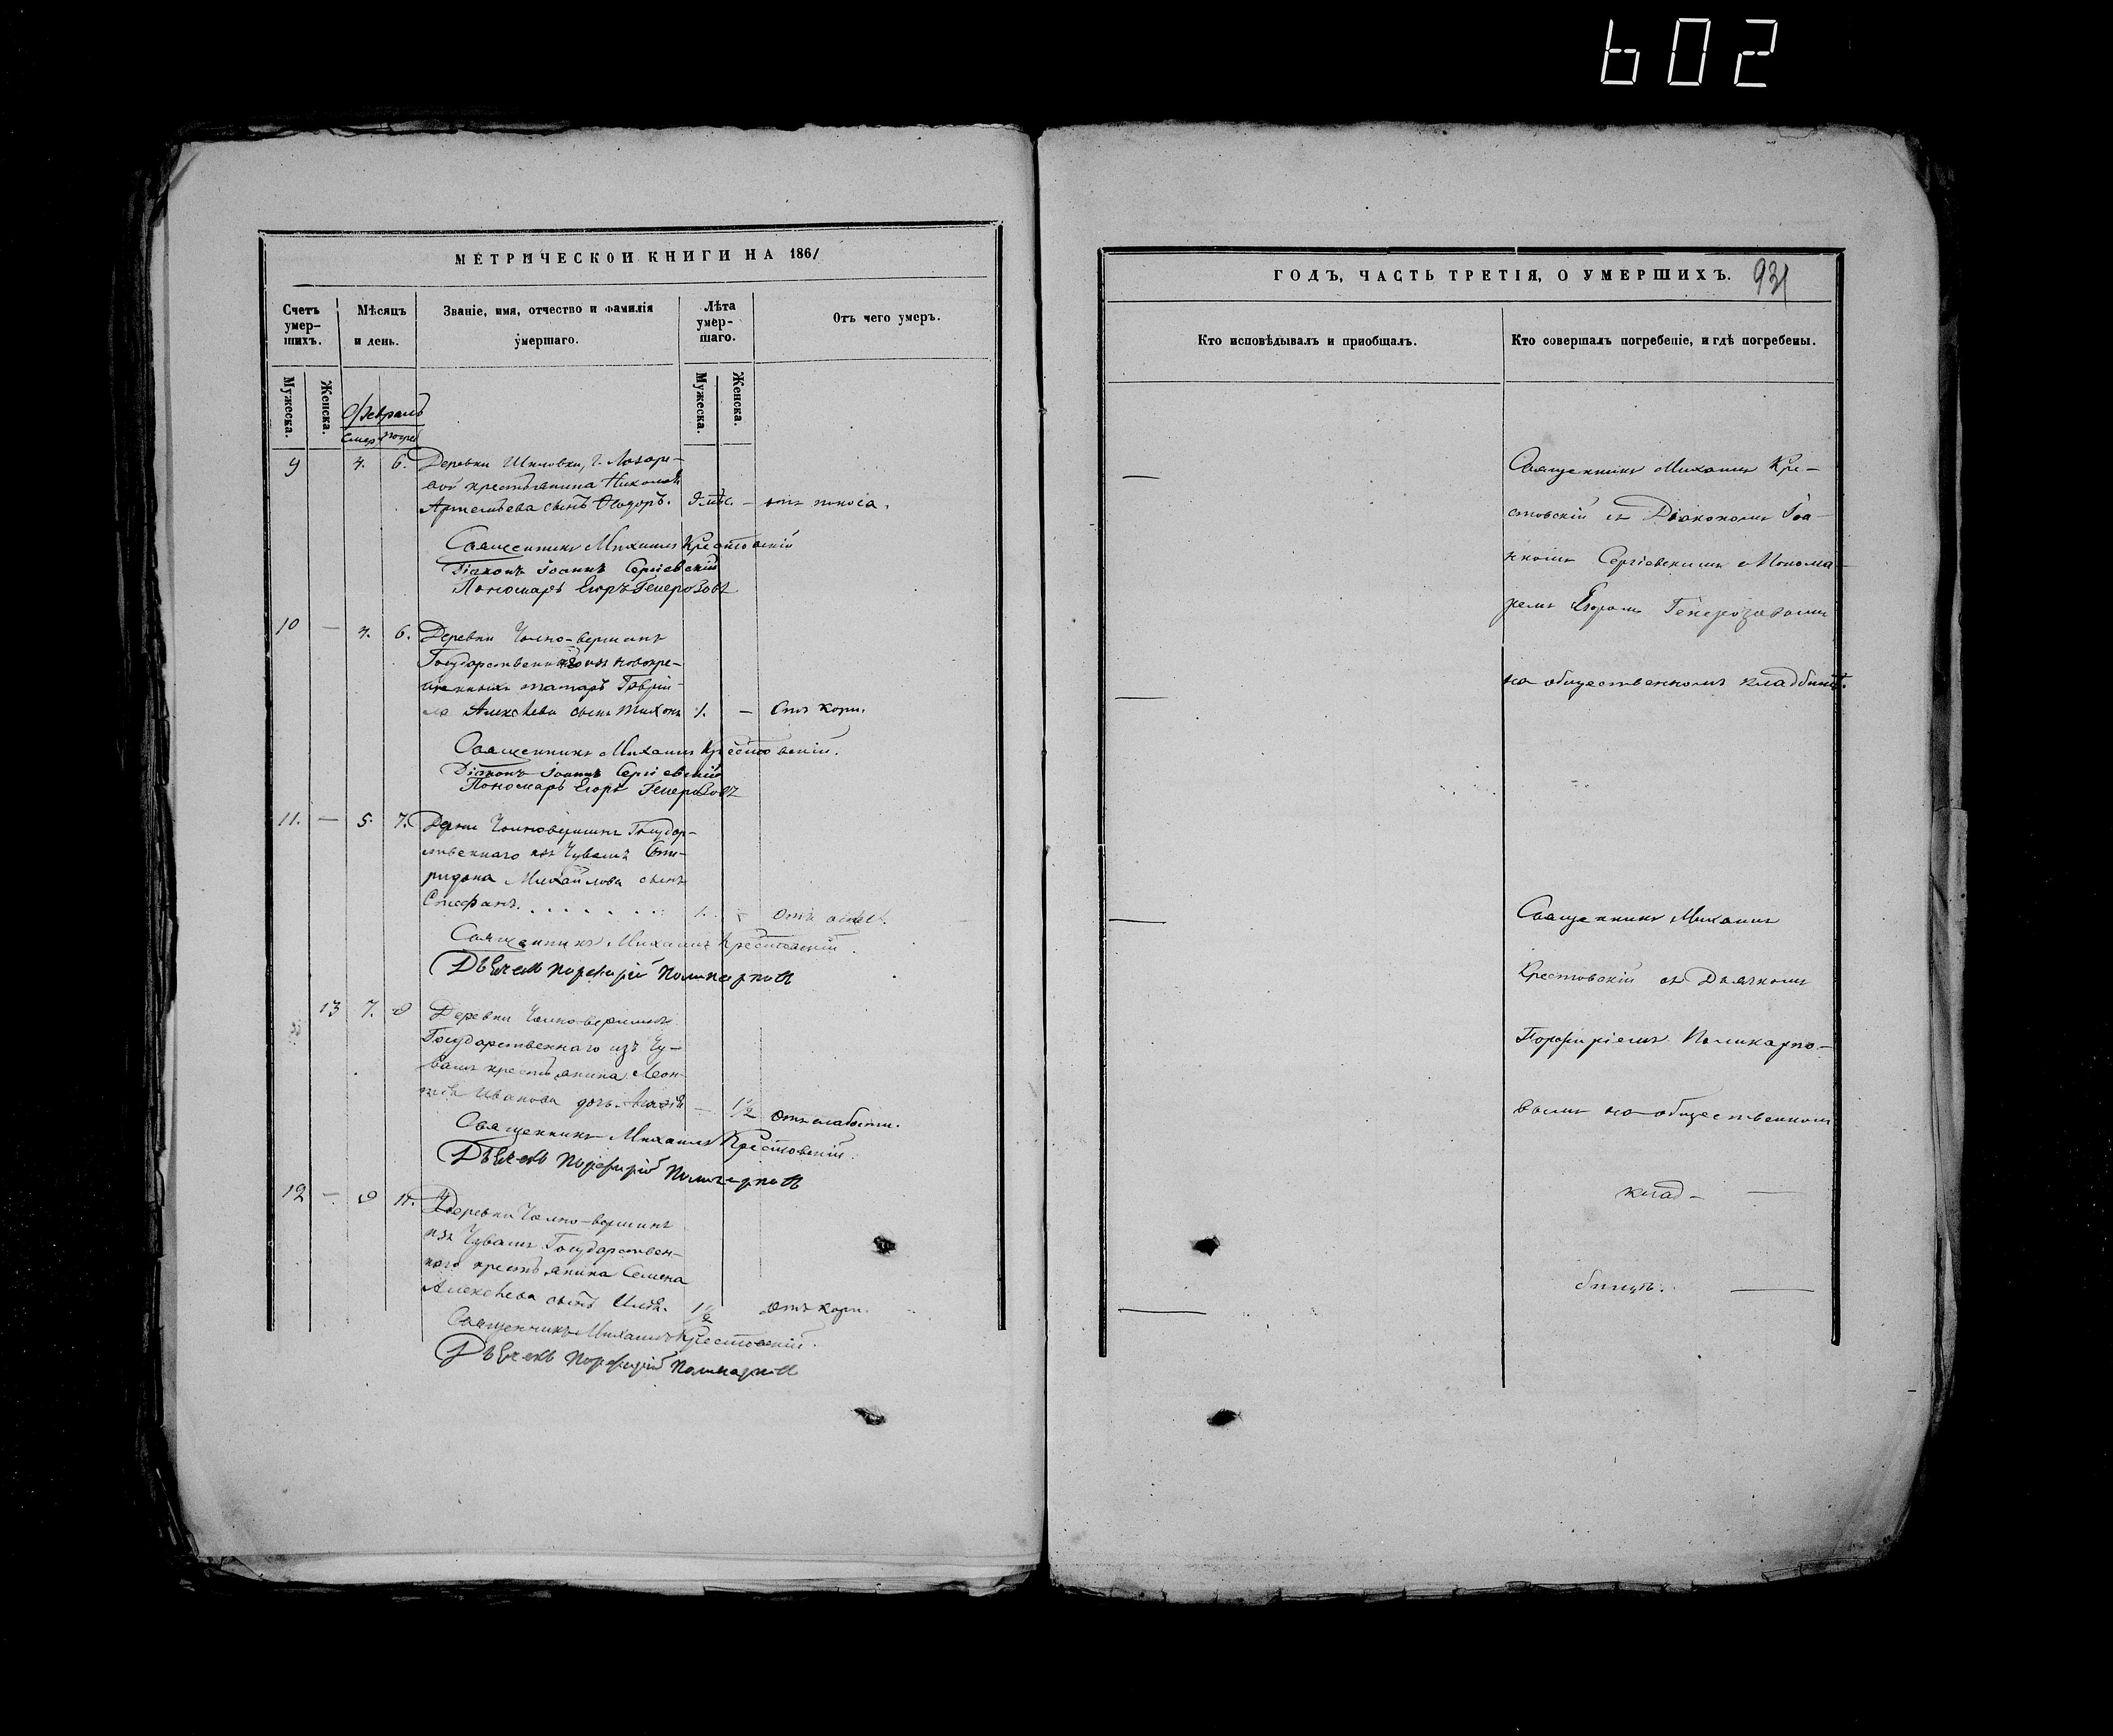 602
МЕТРИЧЕСКОИ КНИГИ НА 1861
Счетъ умер-шихъ.
Мѣсяцъ и день.
Званіе, имя, отчество и фамилія умершаго.
Лѣта умер-шаго.
Отъ чего умеръ.
Мужеска.
Женска.
Февраль
Смер Погре
Мужеска.
Женска.
9 4. 6. Деревни
вой крестьянина Николая
Артемьева сынъ Ѳеодоръ. 9 мѣс. – отъ поноса.
Священникъ Михаилъ Крестовскій
Діаконъ Іоаннъ Сергіевскій
Пономарь Егоръ Генерозовъ
10 — 4. 6. Деревни Чолно-вершинъ
Государственнаго изъ новокре-
щенныхъ татаръ Гаврі-
ла Алексѣева сынъ Тихонъ 1. – Отъ кори.
Священникъ Михаилъ Крестовскій.
Діаконъ Іоаннъ Сергіевскій
Пономарь Егоръ Генерозовъ
11. — 5. 7. Дерни Чолновершинъ Государ-
ственнаго изъ Чувашъ Спи-
ридона Михайлова сынъ
Стефанъ. 1. – Отъ
Священникъ Михаилъ Крестовскій.
Дьячекъ Порфирій Поликарповъ
13 7. 9 Деревни Чолно-вершинъ
Государственнаго изъ Чу-
вашъ крестьянина Леон-
тія Иванова дочь — 1/2 Отъ слабости.
Священникъ Михаилъ Крестовскій.
Дьячекъ Порфирій Поликарповъ
12 — 9 11. Деревни Чолно-вершинъ
изъ Чувашъ Государствен-
наго крестьянина Семена
Алексѣева сынъ Илья. 1 1/2 Отъ кори.
Священникъ Михаилъ Крестовскій.
Дьячекъ Порфирій Поликарповъ
ГОДЪ, ЧАСТЬ ТРЕТІЯ, О УМЕРШИХЪ. 931
Кто исповѣдывалъ и приобщалъ.
Кто совершалъ погребеніе, и гдѣ погребены.
Священникъ Михаилъ Кре-
стовскій съ Діакономъ Іоа-
нномъ Сергіевскимъ и Понома-
ремъ Егоромъ Генерозовымъ
на общественномъ кладбищѣ.
Священникъ Михаилъ
Крестовскій съ Дьячкомъ
Порфиріемъ Поликарпо-
вымъ на общественномъ
клад-
бищѣ.